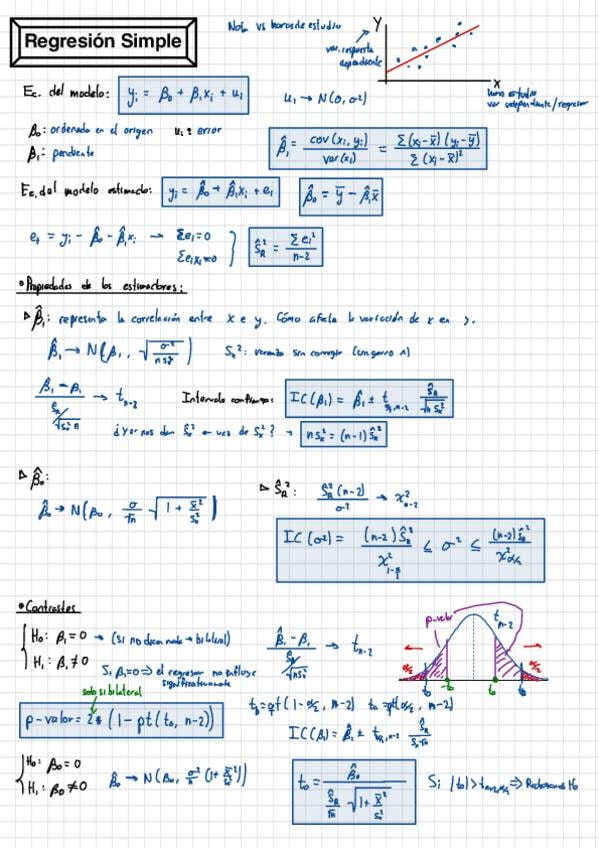 Regresión Simple
Nota vs horas de estudio
Y
var. respuesta
dependiente
X
horas estudio
var independiente/regresor
Ec. del modelo: yᵢ = β₀ + β₁xᵢ + uᵢ
uᵢ → N(0, σ²)
β₀: ordenada en el origen uᵢ: error
β₁: pendiente
β̂₁ = cov(xᵢ, yᵢ) / var(xᵢ) = Σ(xᵢ-x̄)(yᵢ-ȳ) / Σ(xᵢ-x̄)²
Ec. del modelo estimado: yᵢ = β̂₀ + β̂₁xᵢ + eᵢ
β̂₀ = ȳ - β̂₁x̄
eₜ = yᵢ - β̂₀ - β̂₁xᵢ → Σeᵢ=0
Σeᵢxᵢ=0
Ŝ_R² = Σeᵢ² / n-2
• Propiedades de los estimadores:
▷ β̂₁: representa la correlación entre x e y. Cómo afecta la variación de x en y.
β̂₁ → N(β₁, √(σ²/nsₓ²))
Sₓ²: varianza sin corregir (sin gorro ∧)
β̂₁ - β₁ / (Ŝ_R/√(sₓ² n)) → t_n-2
Intervalo confianza: IC(β₁) = β̂₁ ± t_α/2,n-2 Ŝ_R/√(n Sₓ²)
¿Y si nos dan ŝₓ² en vez de Sₓ²? → nsₓ² = (n-1)ŝₓ²
▷ β̂₀:
β̂₀ → N(β₀, σ/√n √(1 + x̄²/sₓ²))
▷ Ŝ_R²: Ŝ_R²(n-2)/σ² → χ²_n-2
IC(σ²) = (n-2)Ŝ_R² / χ²_1-α/2 ≤ σ² ≤ (n-2)Ŝ_R² / χ²_α/2
• Contrastes
H₀: β₁=0 → (si no dicen nada → bilateral)
H₁: β₁≠0
Si β₁=0 ⇒ el regresor no influye
significativamente
β̂₁ - β₁ / (Ŝ_R/√nsₓ²) → t_n-2
p-valor
t_n-2
α/2
α/2
t_b
-t₀
t₀
t_b
solo si bilateral
p-valor = 2* (1-pt(t₀, n-2))
t_b=qt(1-α/2, n-2) t_a=qt(α/2, n-2)
IC(β₁) = β̂₁ ± t_α/2,n-2 Ŝ_R/Sₓ√n
H₀: β₀=0
H₁: β₀≠0
β̂₀ → N(β₀, σ²/n (1+x̄²/sₓ²))
t₀ = β̂₀ / (Ŝ_R/√n √(1+x̄²/sₓ²))
Si |t₀|>t_n-2,α/2 ⇒ Rechazamos H₀